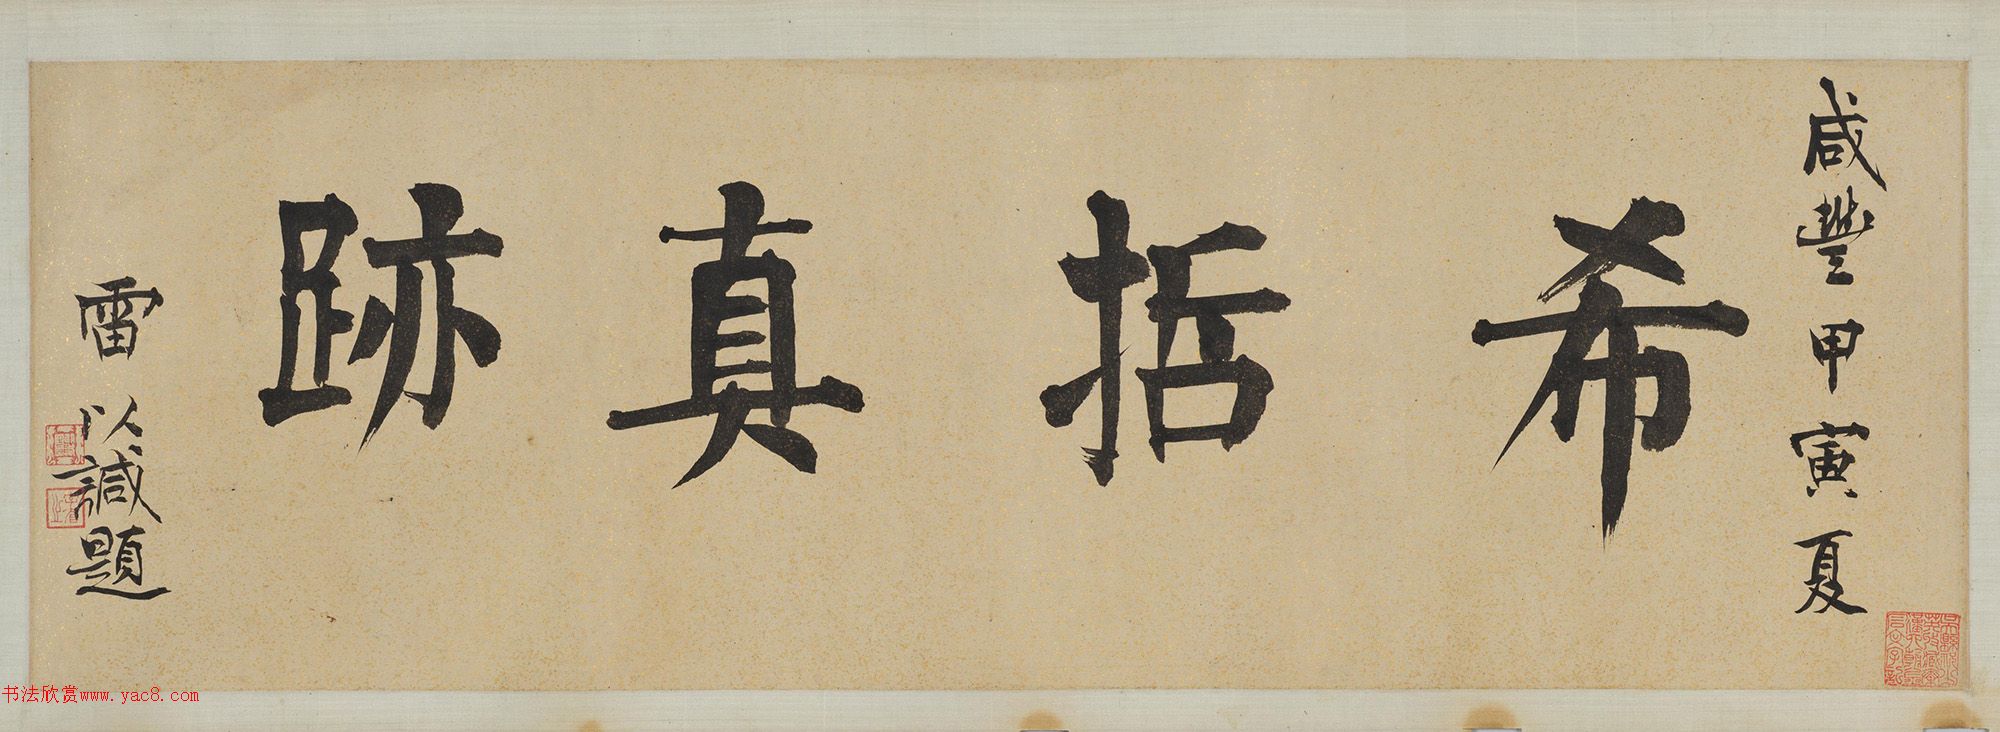 咸豐甲寅夏
希括真跡
雷以諴題
书法欣赏www.yac8.com